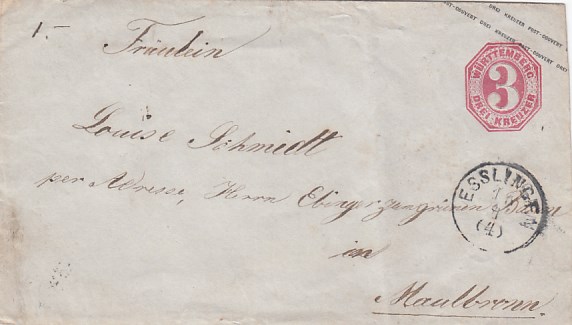 DREI KREUZER POST-COUVERT DREI KREUZER POST-COUVERT DREI
1.-
Fräulein
WÜRTTEMBERG
3
DREI-KREUZER
Louise Schmidt
per Adresse, Herrn Ebinger zum grünen
ESSLINGEN
(4)
in
Maulbronn